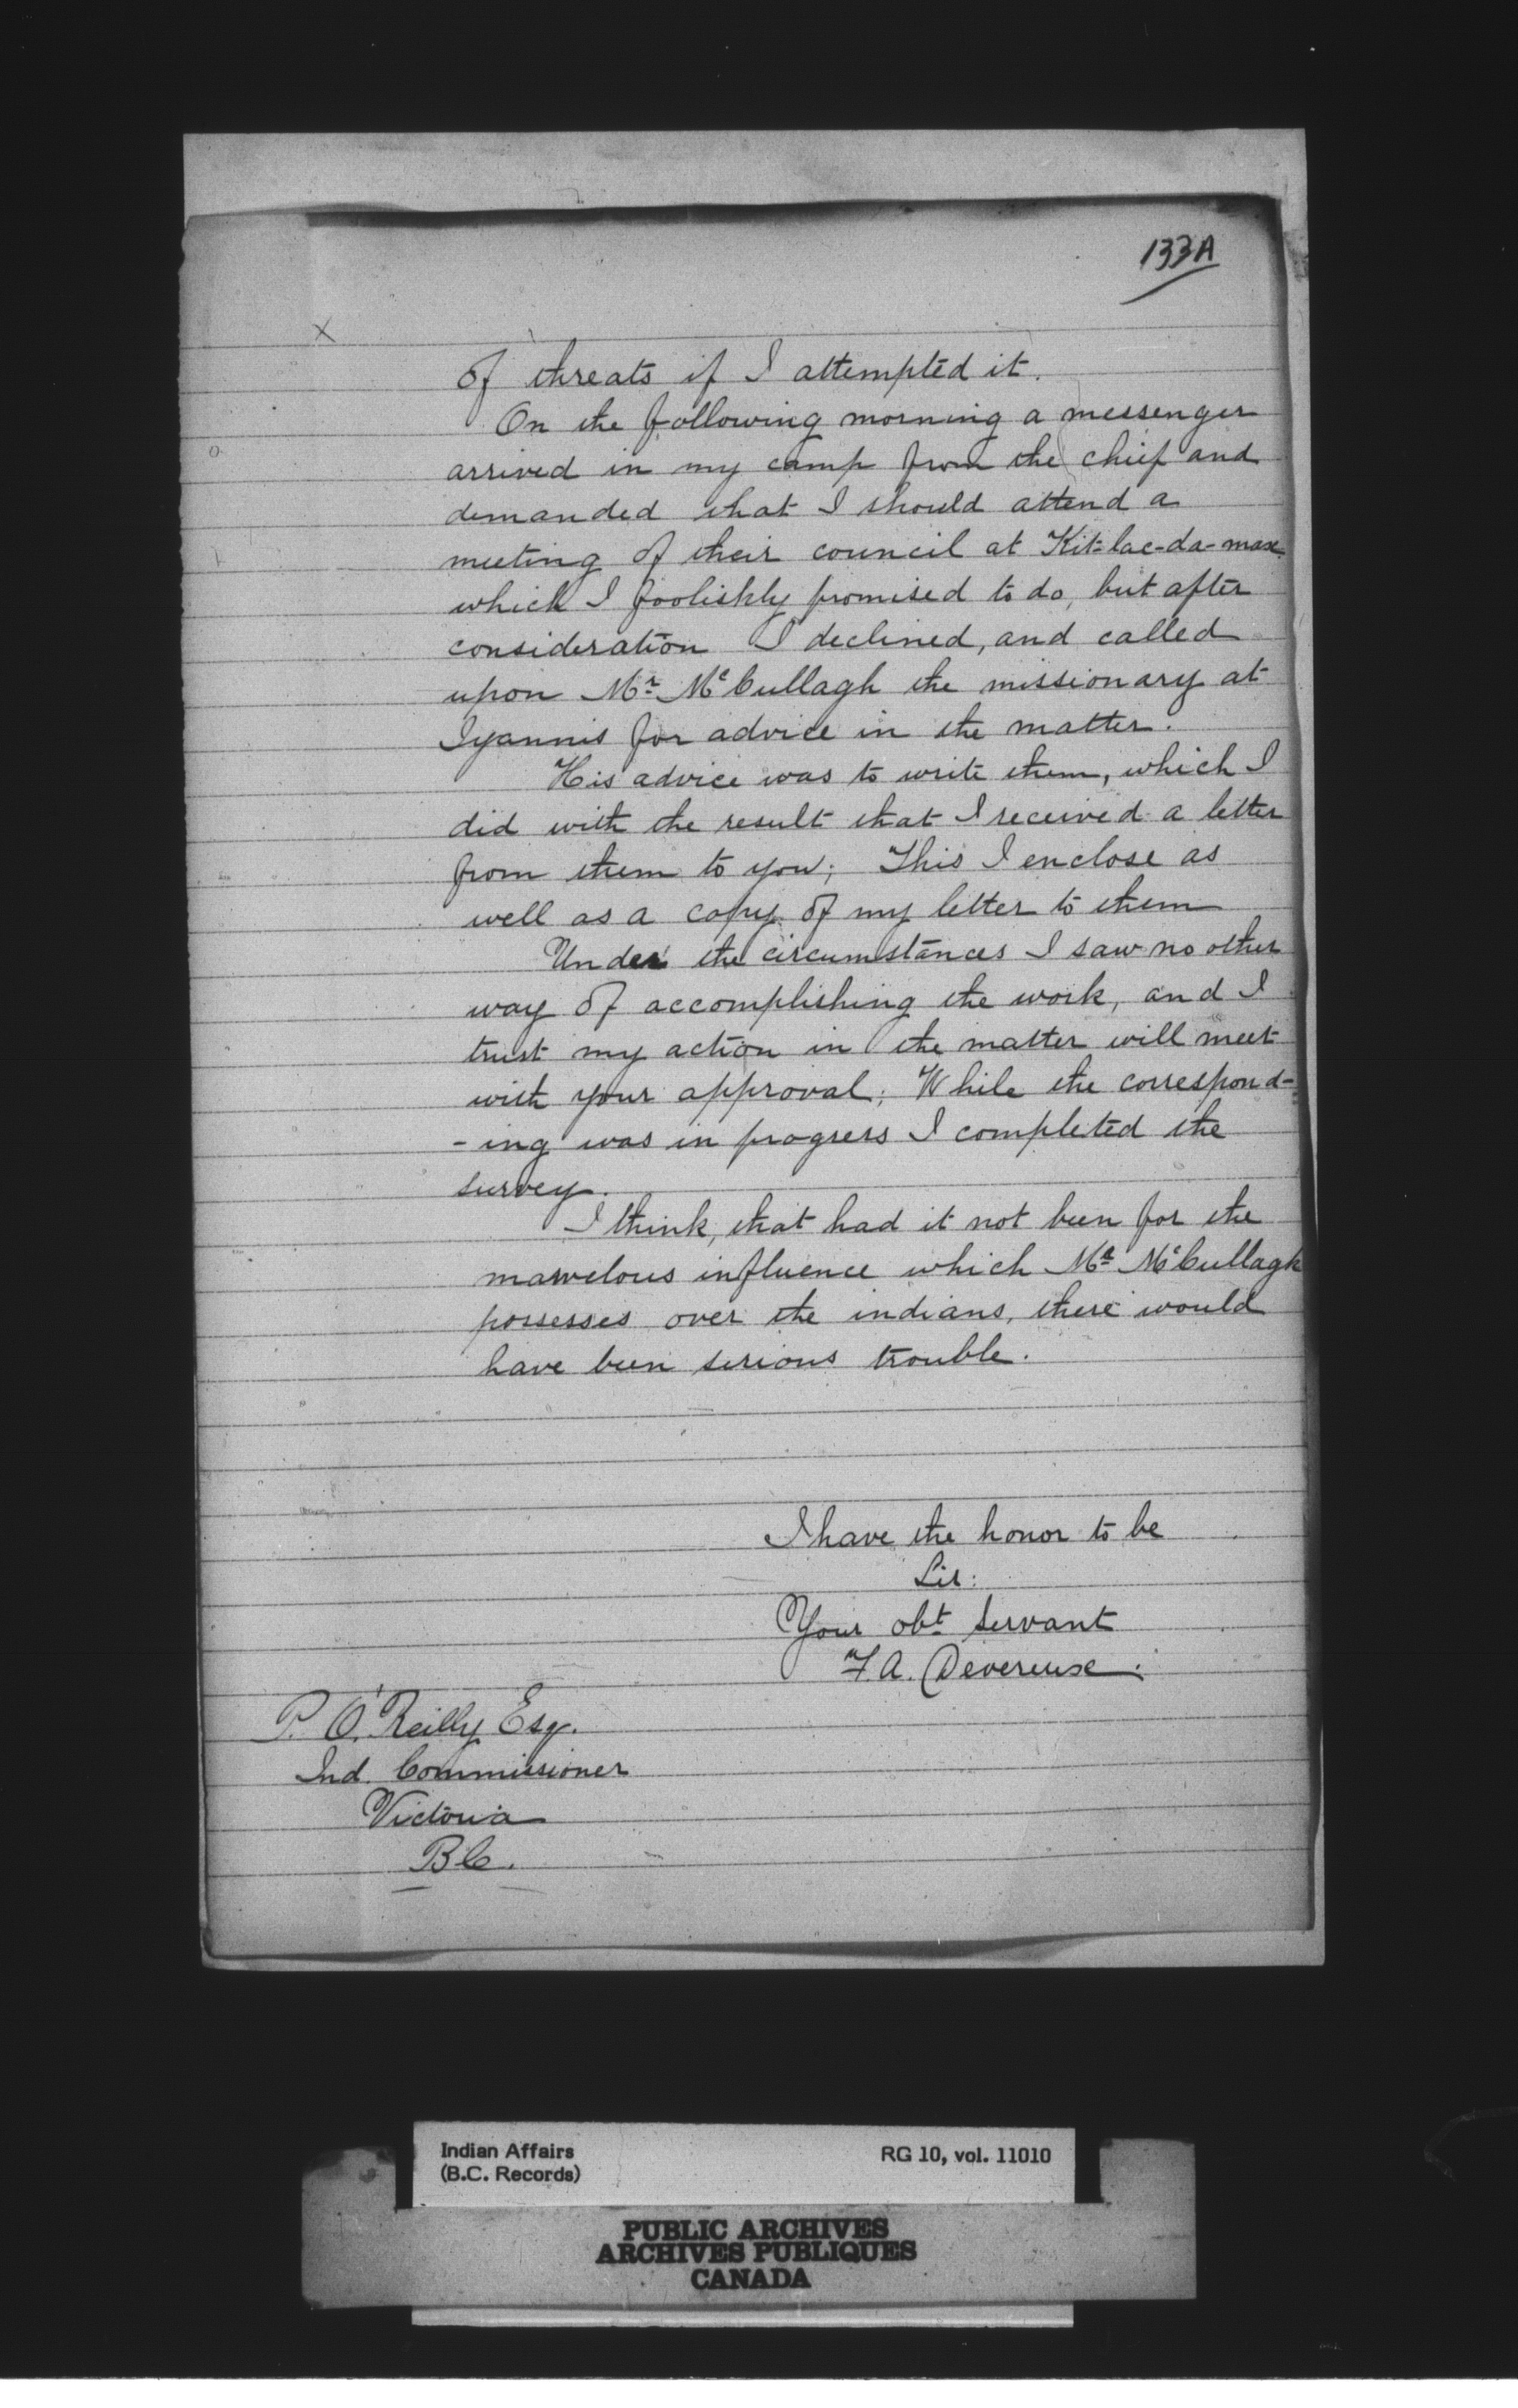 133A
X
of threats if I attempted it.
On the following morning a messenger
arrived in my camp from the chief and
demanded that I should attend a
meeting of their council at Kit-lac-da-max
which I foolishly promised to do, but after
consideration I declined, and called
upon Mr. McCullagh the missionary at
Iyannis for advice in the matter.
His advice was to write them, which I
did with the result that I received a letter
from them to you; This I enclose as
well as a copy of my letter to them
Under the circumstances I saw no other
way of accomplishing the work, and I
trust my action in the matter will meet
with your approval; While the correspond-
-ing was in progress I completed the
survey.
I think, that had it not been for the
marvelous influence which Mr. McCullagh
possesses over the indians, there would
have been serious trouble.
I have the honor to be
Sir:
Your obt servant
F.A. Devereux.
P. O'Reilly Esq.
Ind. Commissioner
Victoria
BC.
Indian Affairs
(B.C. Records)
RG 10, vol. 11010
PUBLIC ARCHIVES
ARCHIVES PUBLIQUES
CANADA